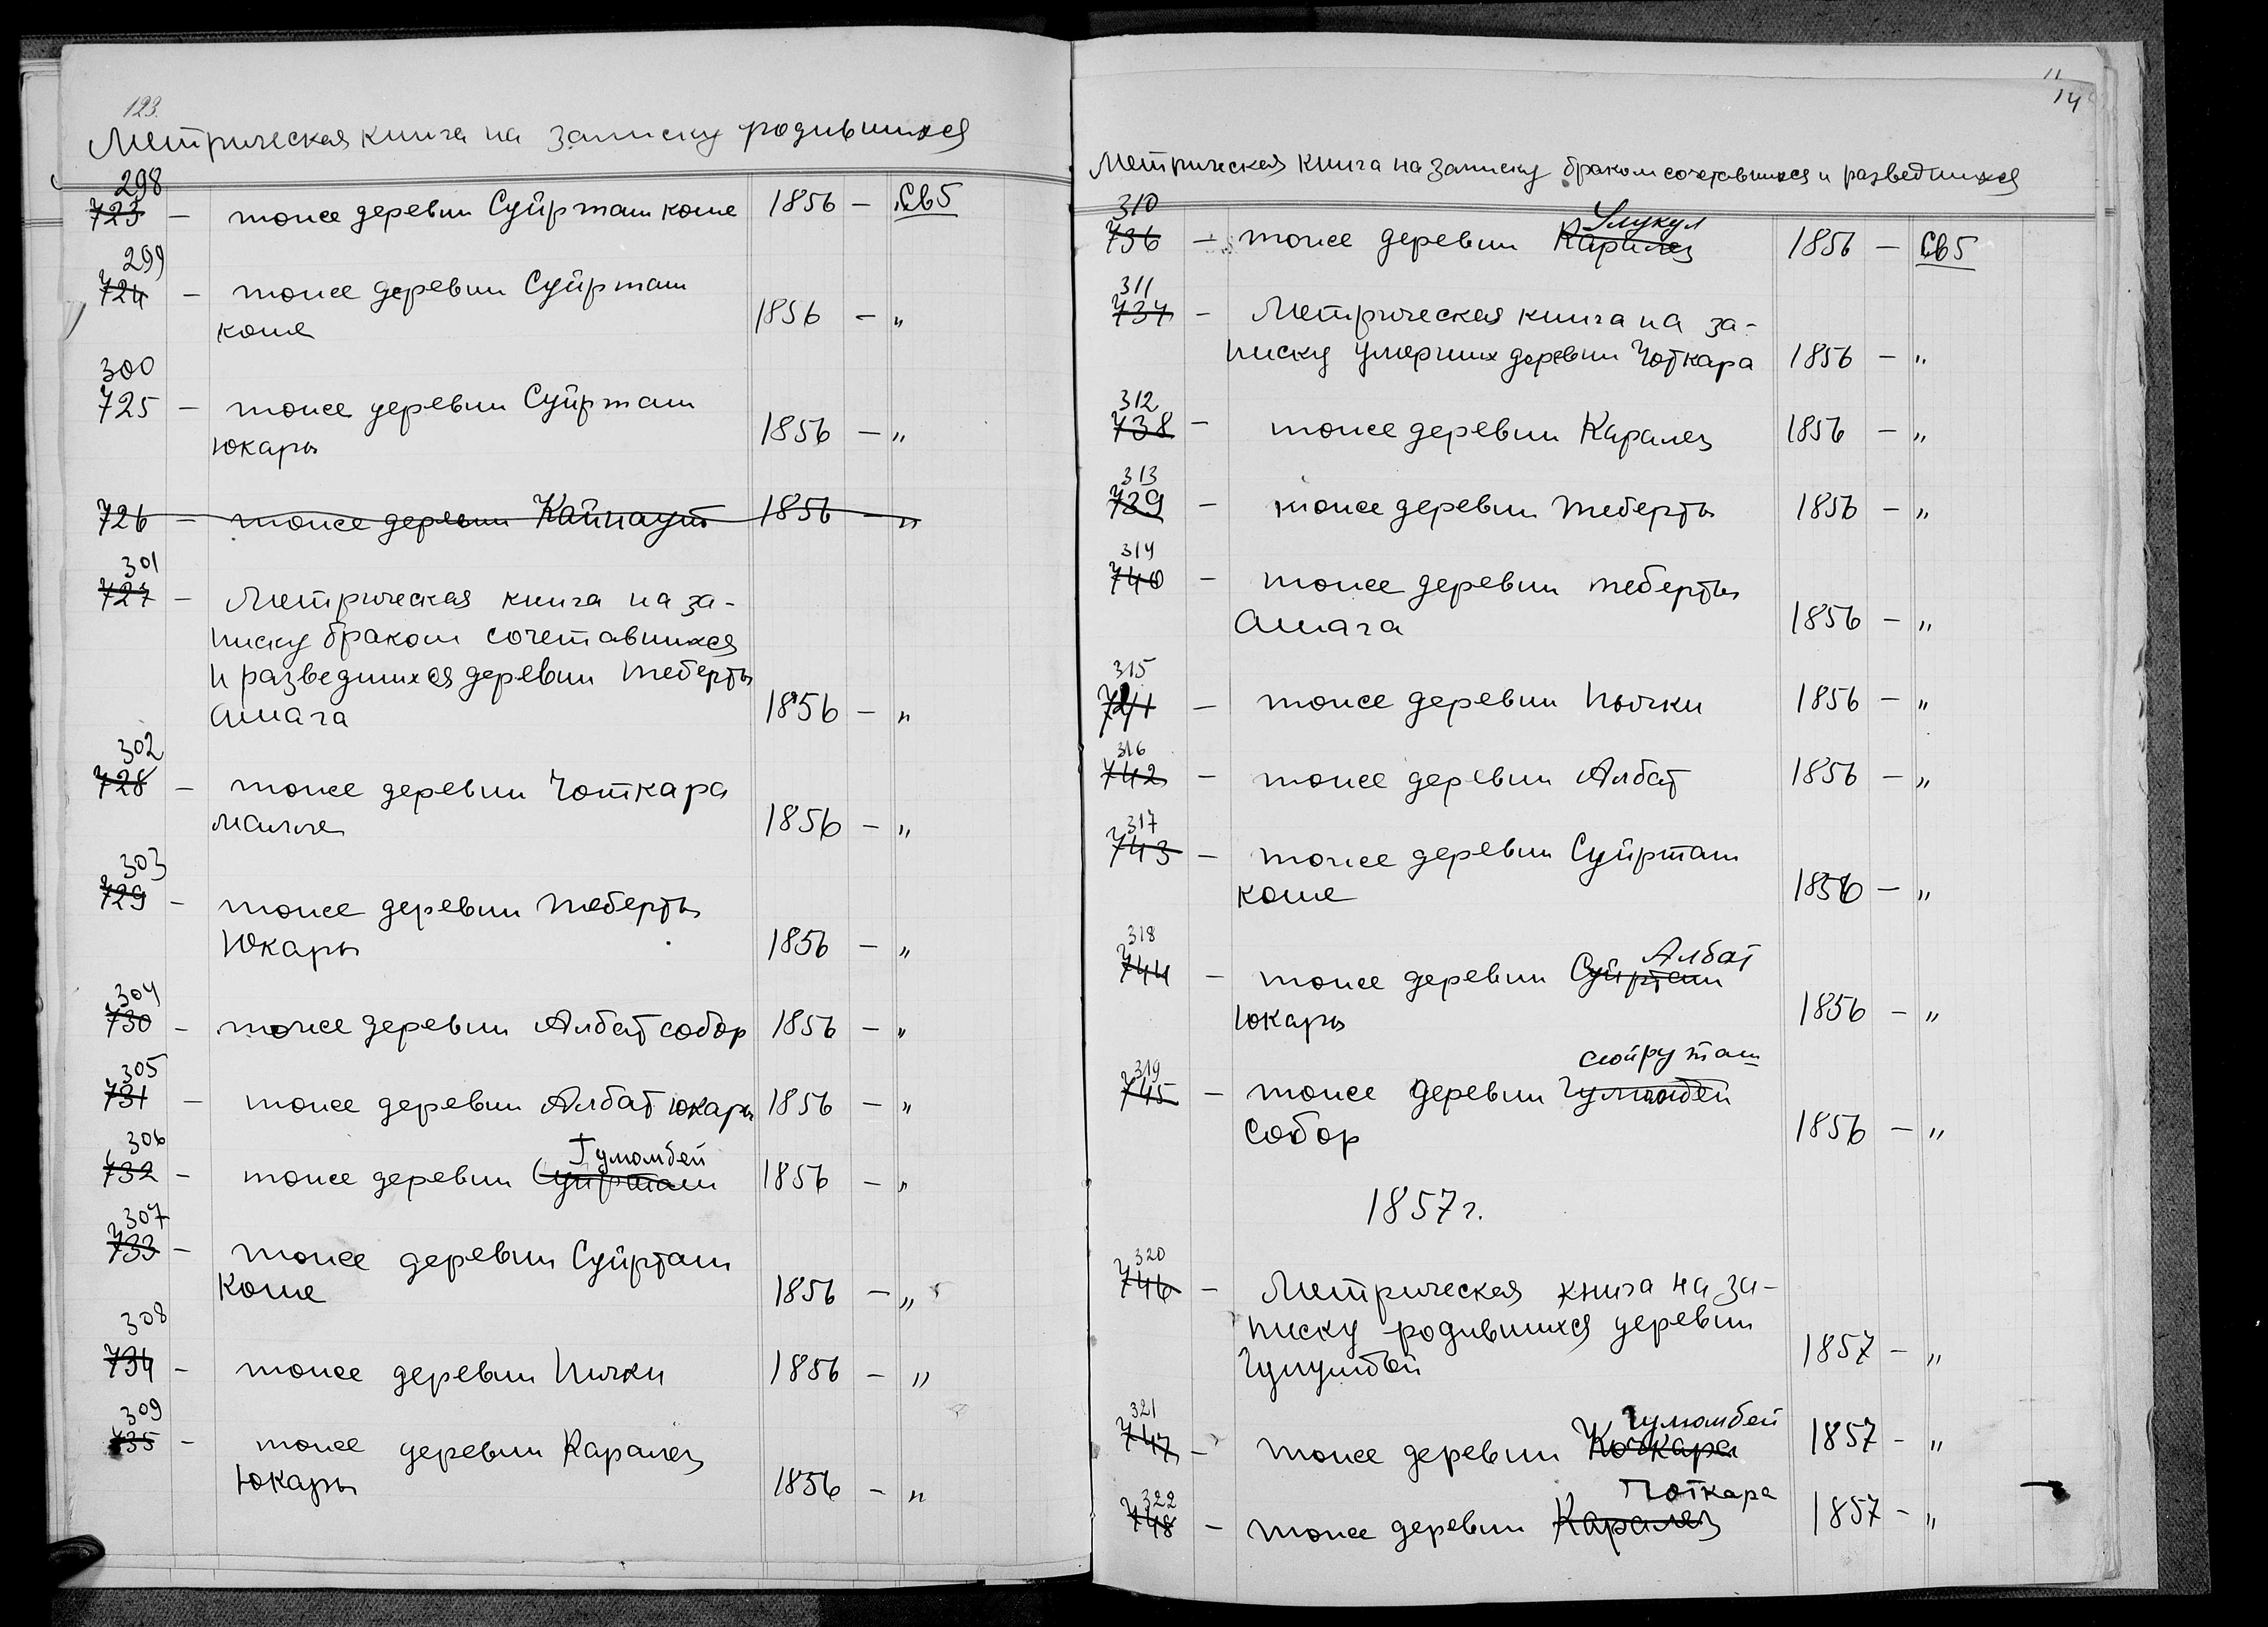 123.
Метрическая книга на записку родившихся
298
723 – тоже деревни Суйрташ коше 1856 – Св5
299
724 – тоже деревни Суйрташ
коше 1856 – "
300
725 – тоже деревни Суйрташ
юкары 1856 – "
726 – тоже деревни Кайнаут 1856 – "
301
727 – Метрическая книга на за-
писку браком сочетавшихся
и разведшихся деревни Теберты
ашага 1856 – "
302
728 – тоже деревни Чоткара
малле 1856 – "
303
729 – тоже деревни Теберты
Юкары 1856 – "
304
730 – тоже деревни Албат собор 1856 – "
305
731 – тоже деревни Албат юкары 1856 – "
306 Гумомбей
732 – тоже деревни Суйрташ 1856 – "
307
733 – тоже деревни Суйрташ
Коше 1856 – "
308
734 – тоже деревни Пички 1856 – "
309
735 – тоже деревни Каралез
Юкары 1856 – "
11
14
Метрическая книга на записку браком сочетавшихся и разведшихся
310 Улукул
736 – тоже деревни Каралез 1856 – Св5
311
737 – Метрическая книга на за-
писку умерших деревни Чоткара 1856 – "
312
738 – тоже деревни Каралез 1856 – "
313
739 – тоже деревни Теберты 1856 – "
314
740 – тоже деревни Теберты
Ашага 1856 – "
315
741 – тоже деревни Пычки 1856 – "
316
742 – тоже деревни Албат 1856 – "
317
743 – тоже деревни Суйрташ
коше 1856 – "
318 Албат
744 – тоже деревни Суйрташ
юкары 1856 – "
319 сюйру таш
745 – тоже деревни
собор 1856 – "
1857 г.
320
746 – Метрическая книга на за-
писку родившихся деревни
1857 – "
321 Чумомбей
747 – тоже деревни Кочкара 1857 – "
322 Чоткара
748 – тоже деревни Каралез 1857 – "